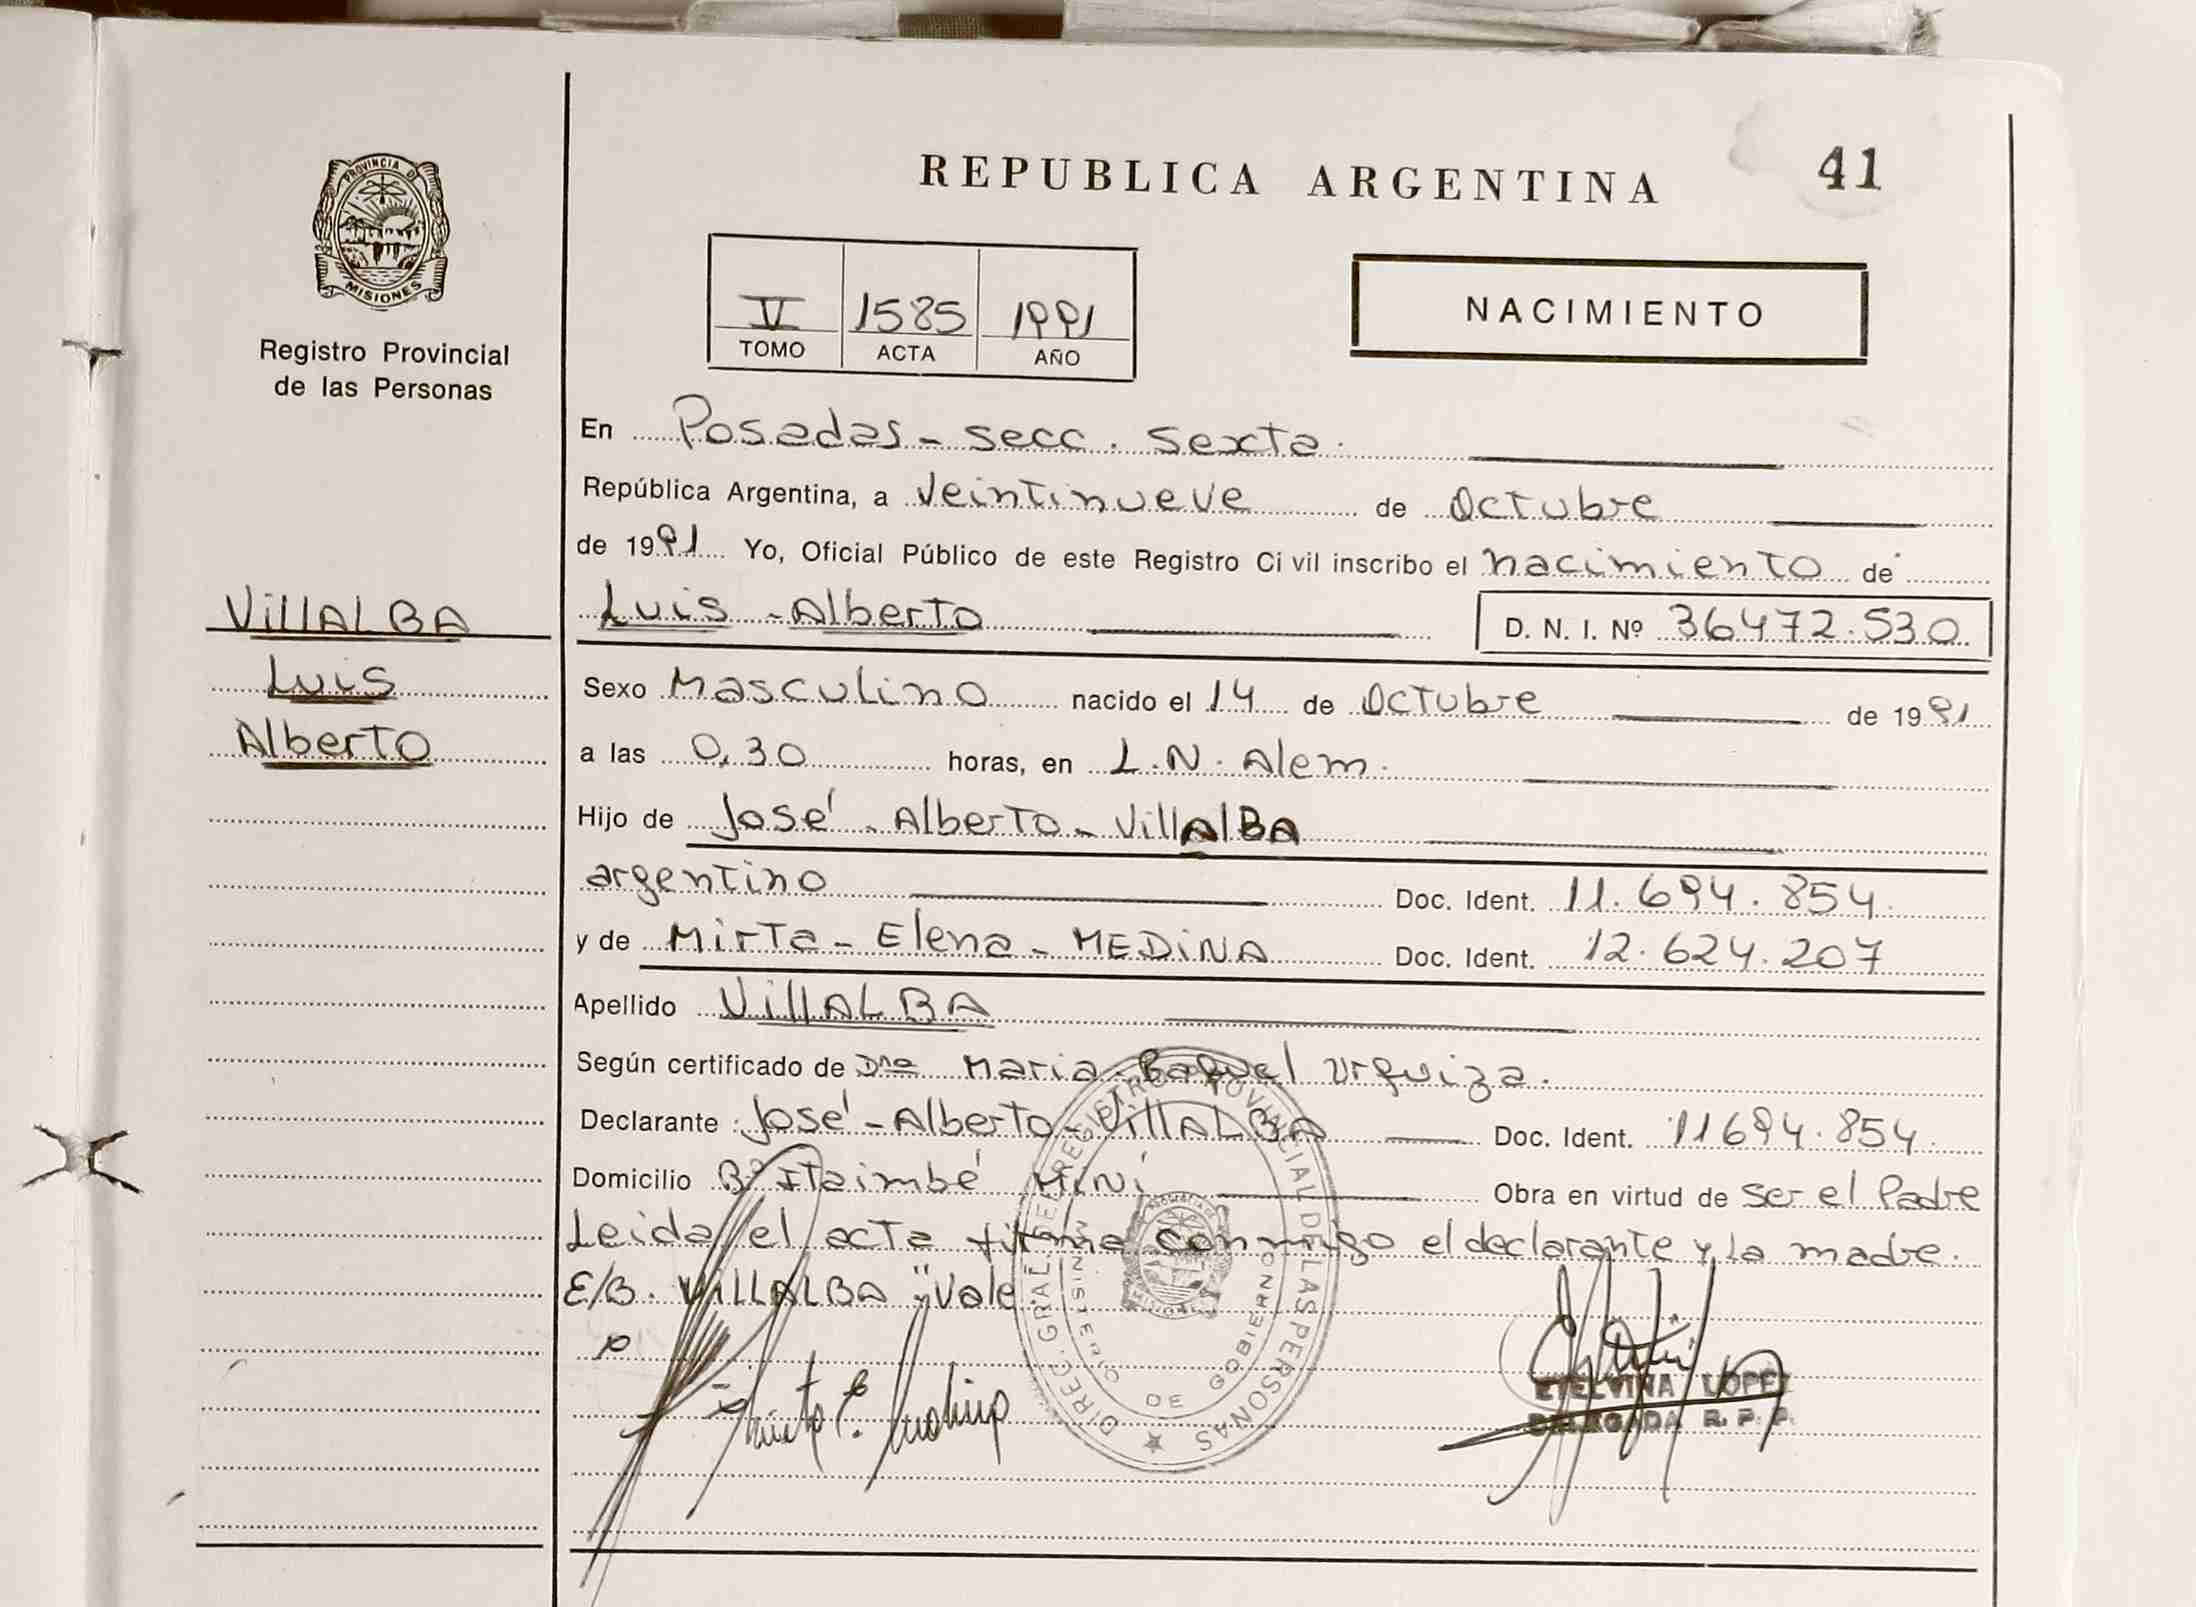 PROVINCIA D
MISIONES
Registro Provincial
de las Personas
VillALBA
Luis
Alberto
REPUBLICA ARGENTINA
41
V 1585 1991
TOMO ACTA AÑO
NACIMIENTO
En Posadas - secc. sexta.
República Argentina, a veintinueve de Octubre
de 1991 Yo, Oficial Público de este Registro Ci vil inscribo el nacimiento de
Luis - Alberto D. N. I. Nº 36472.530
Sexo Masculino nacido el 14 de Octubre de 1991
a las 0,30 horas, en L.N. Alem.
Hijo de José - Alberto - VillalBA
argentino Doc. Ident. 11.694.854
y de Mirta - Elena - MEDiNA Doc. Ident. 12.624.207
Apellido VillALBA
Según certificado de Dña Maria Raquel Urquiza.
Declarante José - Alberto - VillALBA Doc. Ident. 11694.854.
Domicilio Bº Itaimbé Miní Obra en virtud de ser el Padre
Leida el acta firma conmigo el declarante y la madre.
E/B. VILLALBA "Vale
DIREC. GRAL DE REGISTRO PROVINCIAL DE LAS PERSONAS
DE GOBIERNO
MISIONES
ETELVINA LOPEZ
DELEGADA R. P. P.